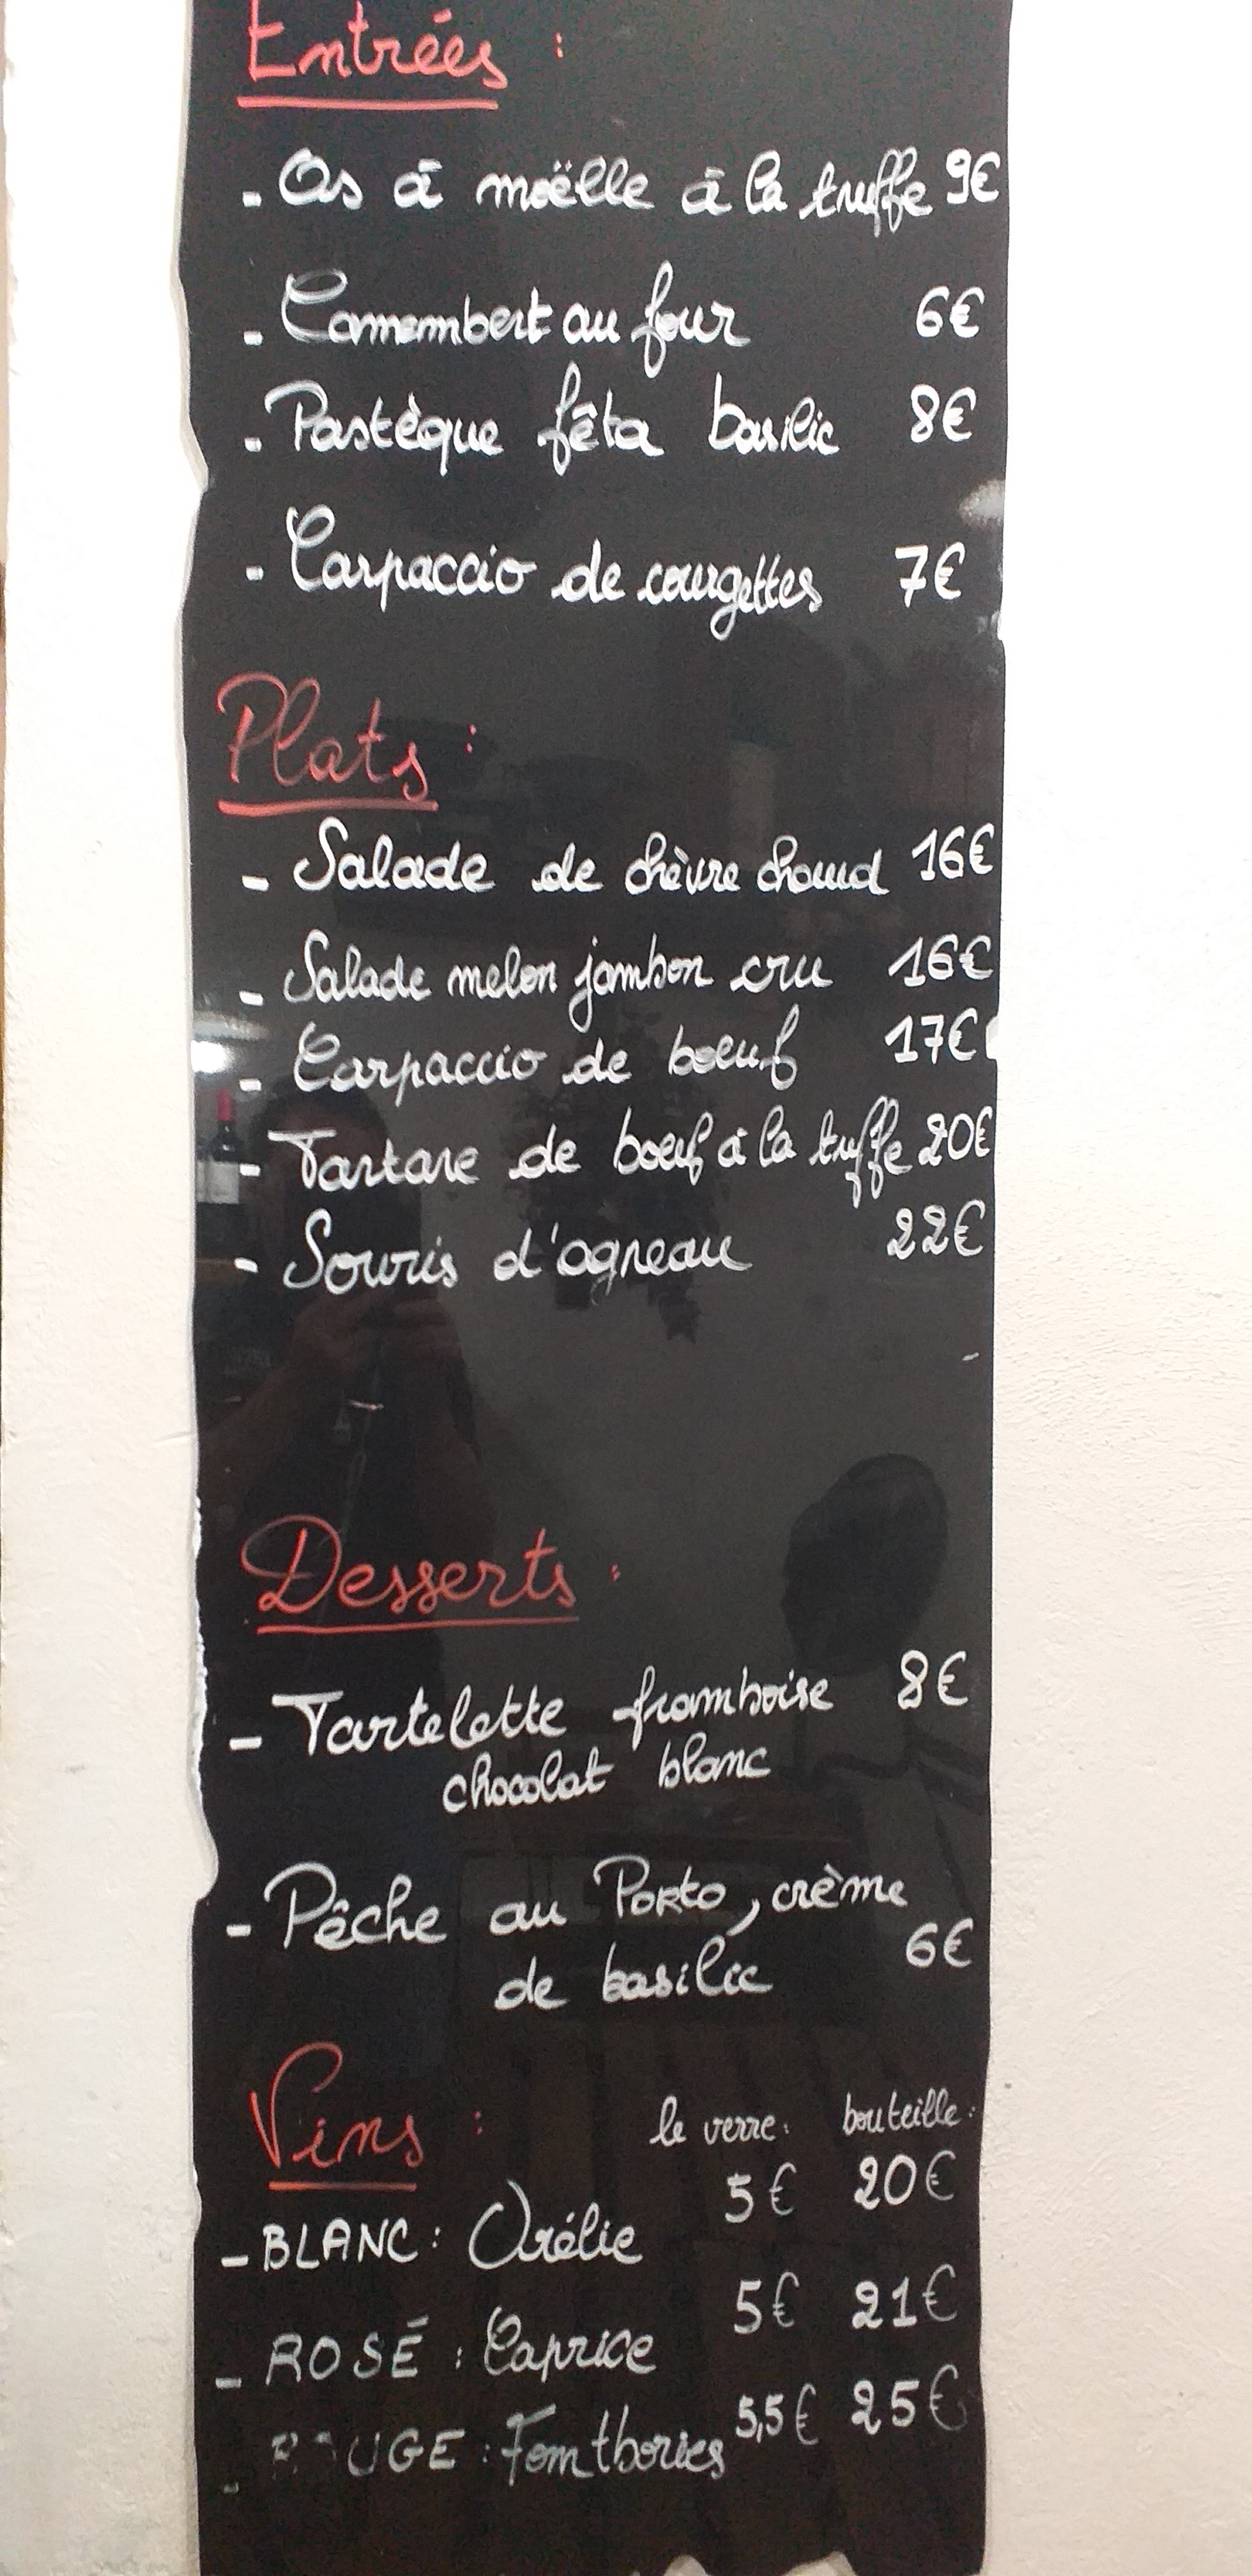 Entrées :
- Os à moëlle à la truffe 9€
- Camembert au four 6€
- Pastèque fêta basilic 8€
- Carpaccio de courgettes 7€
Plats :
- Salade de chèvre chaud 16€
- Salade melon jambon cru 16€
- Carpaccio de boeuf 17€
- Tartare de boeuf à la truffe 20€
- Souris d'agneau 22€
Desserts :
- Tartelette framboise 8€
chocolat blanc
- Pêche au Porto, crème
de basilic 6€
Vins : le verre: bouteille:
- BLANC : Orélie 5€ 20€
- ROSÉ : Caprice 5€ 21€
- ROUGE : 5,5€ 25€